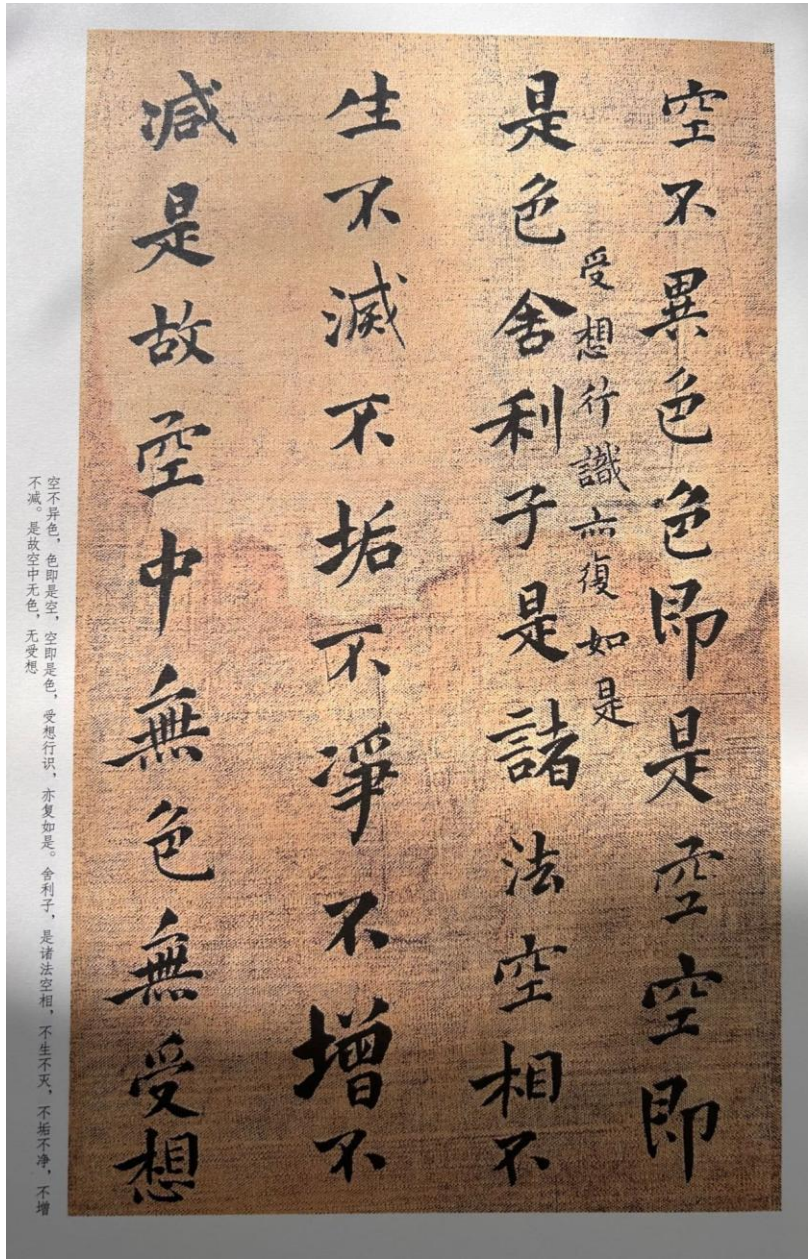 空不異色色即是空空即
受想行識亦復如是
是色舍利子是諸法空相不
生不滅不垢不淨不增不
減是故空中無色無受想
空不异色，色即是空，空即是色，受想行识，亦复如是。舍利子，是诸法空相，不生不灭，不垢不净，不增
不减。是故空中无色，无受想